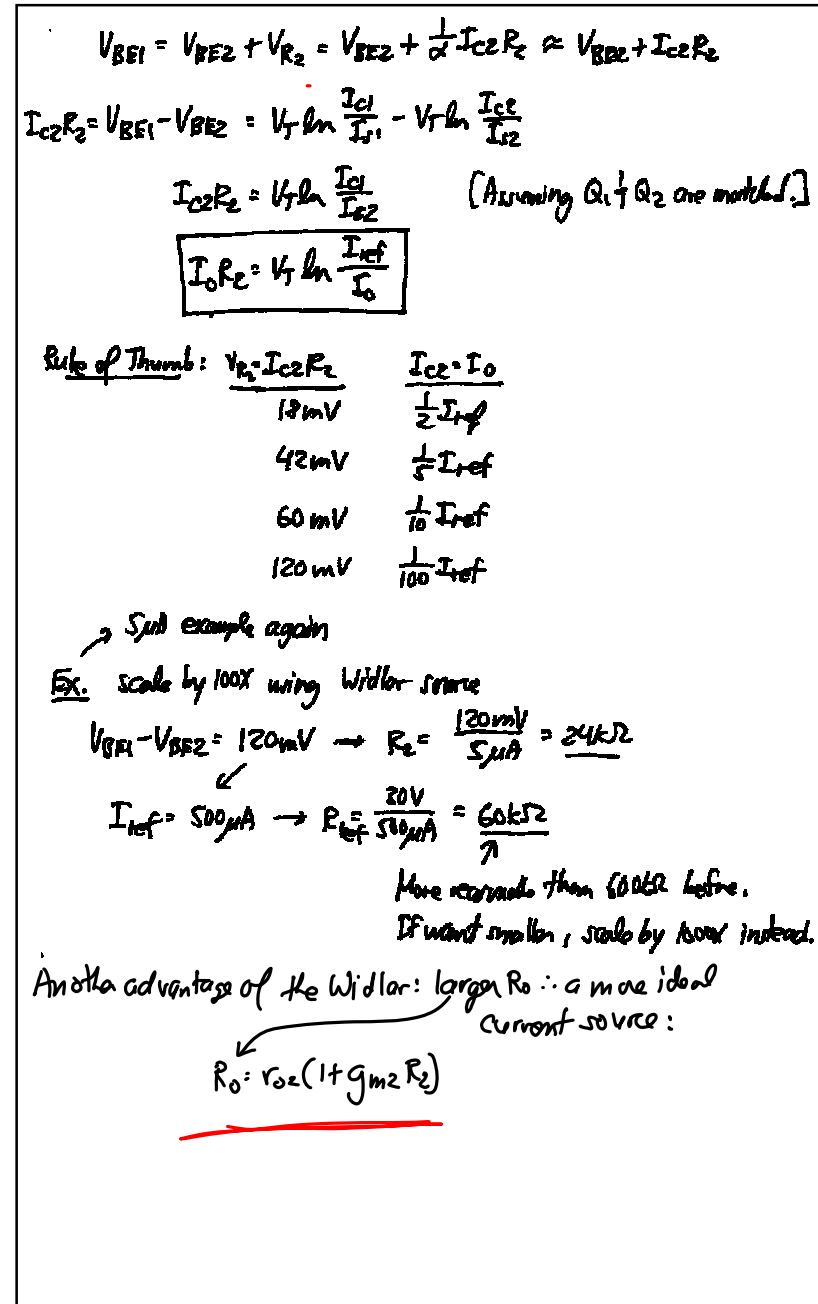 V_BE1 = V_BE2 + V_R2 = V_BE2 + 1/α I_C2 R_2 ≈ V_BE2 + I_C2 R_2
I_C2 R_2 = V_BE1 - V_BE2 = V_T ln I_C1/I_S1 - V_T ln I_C2/I_S2
I_C2 R_2 = V_T ln I_C1/I_C2 [Assuming Q_1 & Q_2 are matched.]
I_O R_2 = V_T ln I_ref/I_O
Rule of Thumb: V_R2 = I_C2 R_2 I_C2 = I_O
18mV 1/2 I_ref
42mV 1/5 I_ref
60mV 1/10 I_ref
120mV 1/100 I_ref
→ 5μA example again
Ex. scale by 100X using Widlar source
V_BE1 - V_BE2 = 120mV → R_2 = 120mV/5μA = 24kΩ
I_ref = 500μA → R_ref = 30V/500μA = 60kΩ
More reasonable than 600kΩ before.
If want smaller, scale by 1000X instead.
Another advantage of the Widlar: larger R_o ∴ a more ideal
current source:
R_o = r_o2 (1 + g_m2 R_2)